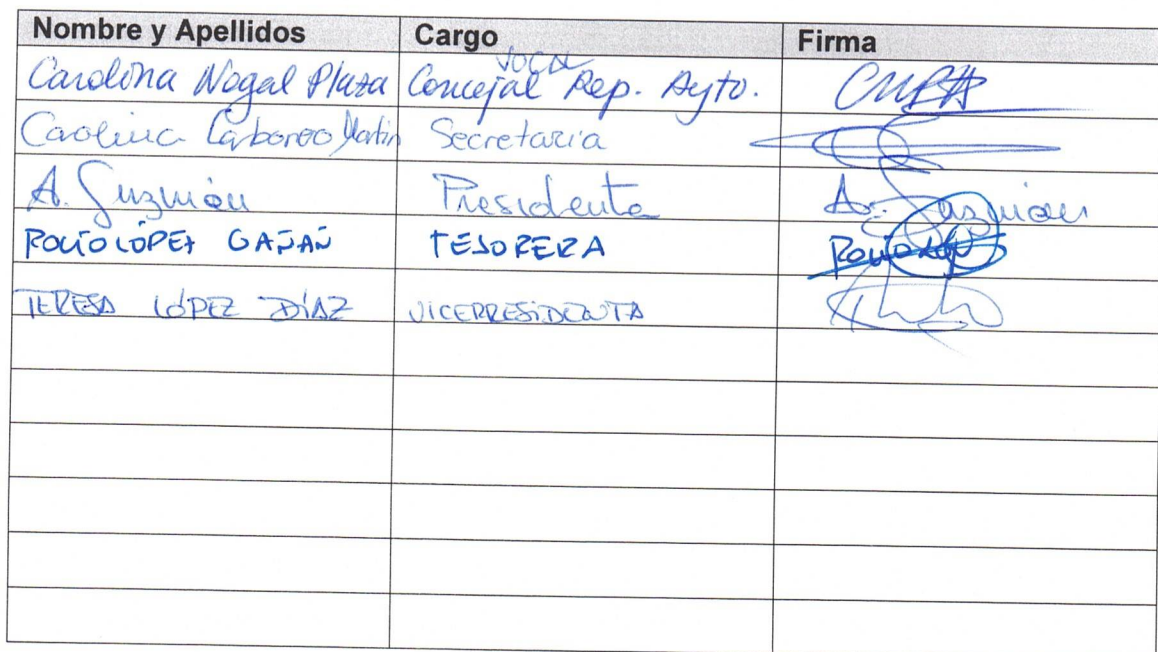 Nombre y Apellidos Cargo Firma
vocal
Carolina Nogal Plaza Concejal Rep. Ayto.
Carolina Martín Secretaria
A. Guzmán Presidenta A. Guzmán
ROCÍO LÓPEZ GAÑÁN TESORERA Rocío
TERESA LÓPEZ DÍAZ VICEPRESIDENTA